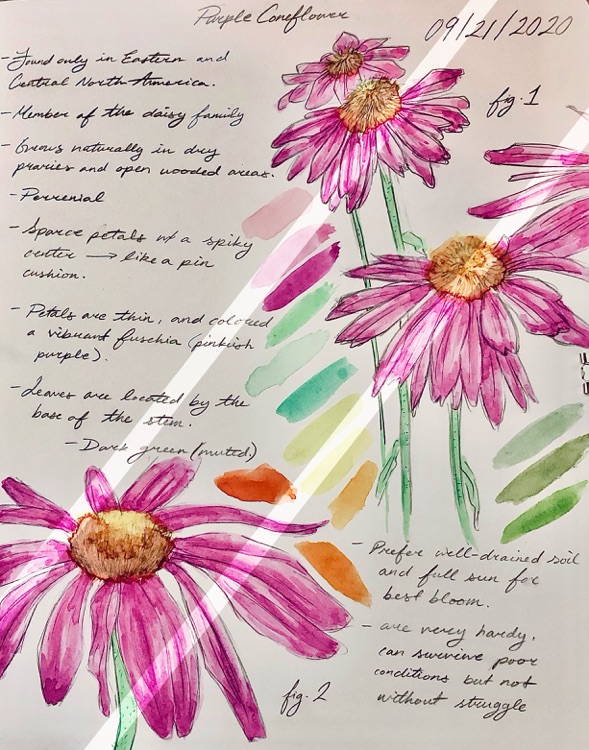 Purple Coneflower
09/21/2020
- Found only in Eastern and
Central North America.
- Member of the daisy family
- Grows naturally in dry
praries and open wooded areas.
- Perrenial
- Sparce petals w/ a spiky
center → like a pin
cushion.
- Petals are thin, and colored
a vibrant fuschia (pinkish
purple).
- Leaves are located by the
base of the stem.
- Dark green (muted)
fig. 1
- Prefer well-drained soil
and full sun for
best bloom.
- are very hardy,
can survive poor
conditions but not
without struggle
fig. 2